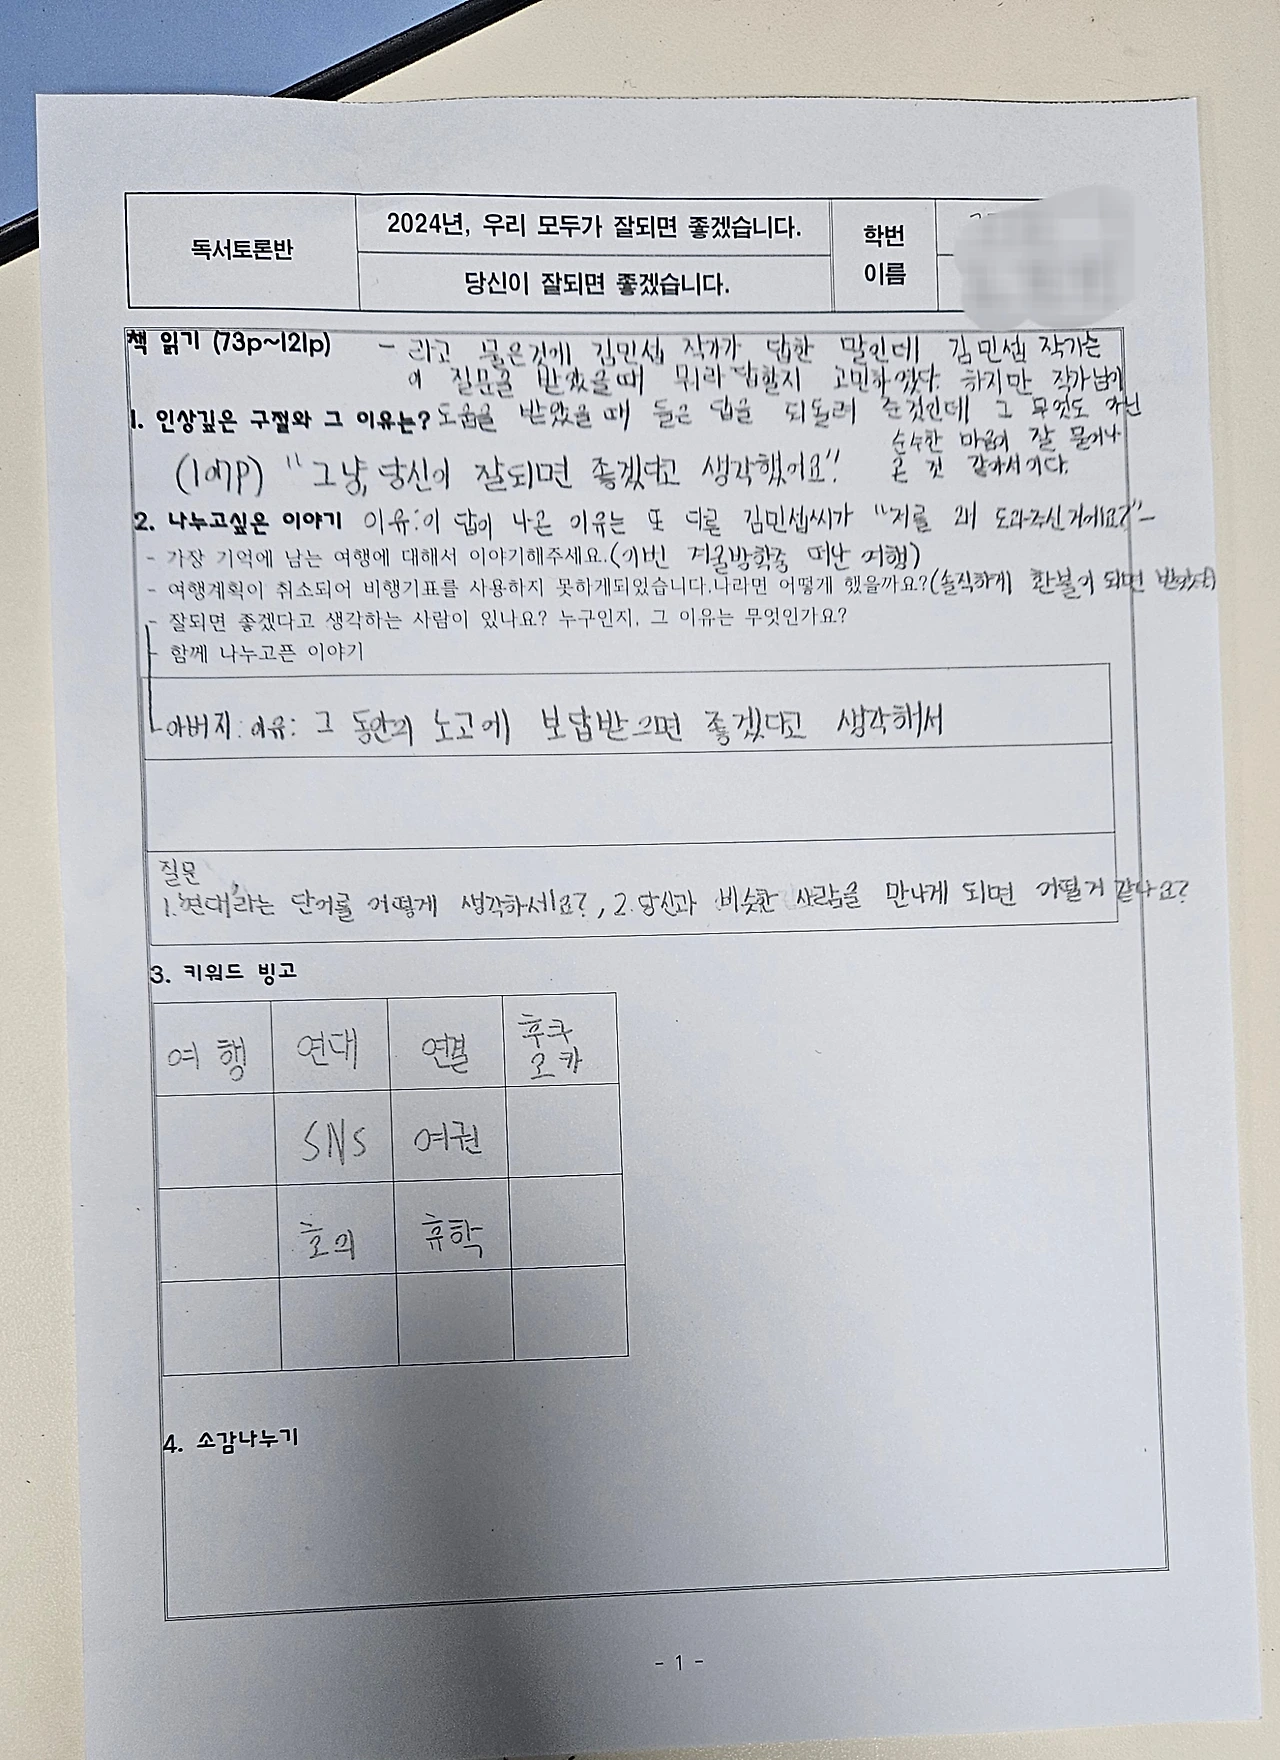 독서토론반
2024년, 우리 모두가 잘되면 좋겠습니다.
당신이 잘되면 좋겠습니다.
학번
이름
책 읽기 (73p~121p)
- 라고 물은것에 김민섭 작가가 답한 말인데 김민섭 작가는
이 질문을 받았을때 뭐라 답할지 고민하였다. 하지만 작가님이
1. 인상깊은 구절와 그 이유는? 도움을 받았을 때 들은 답을 되돌려 준것인데 그 무엇도 아닌
순수한 마음이 잘 묻어나
(107p) "그냥, 당신이 잘되면 좋겠다고 생각했어요"
온 것 같아서이다.
2. 나누고싶은 이야기 이유: 이 답이 나온 이유는 또 다른 김민섭씨가 "저를 왜 도와주신거에요?"-
- 가장 기억에 남는 여행에 대해서 이야기해주세요.(이번 겨울방학중 떠난 여행)
- 여행계획이 취소되어 비행기표를 사용하지 못하게되었습니다.나라면 어떻게 했을까요?(솔직하게 환불이 되면 받았다)
- 잘되면 좋겠다고 생각하는 사람이 있나요? 누구인지, 그 이유는 무엇인가요?
- 함께 나누고픈 이야기
아버지: 이유: 그 동안의 노고에 보답받으면 좋겠다고 생각해서
질문
1.'연대'라는 단어를 어떻게 생각하세요?, 2.당신과 비슷한 사람을 만나게 되면 어떨거 같나요?
3. 키워드 빙고
여행 연대 연결 후쿠
오카
SNS 여권
호의 휴학
4. 소감나누기
- 1 -